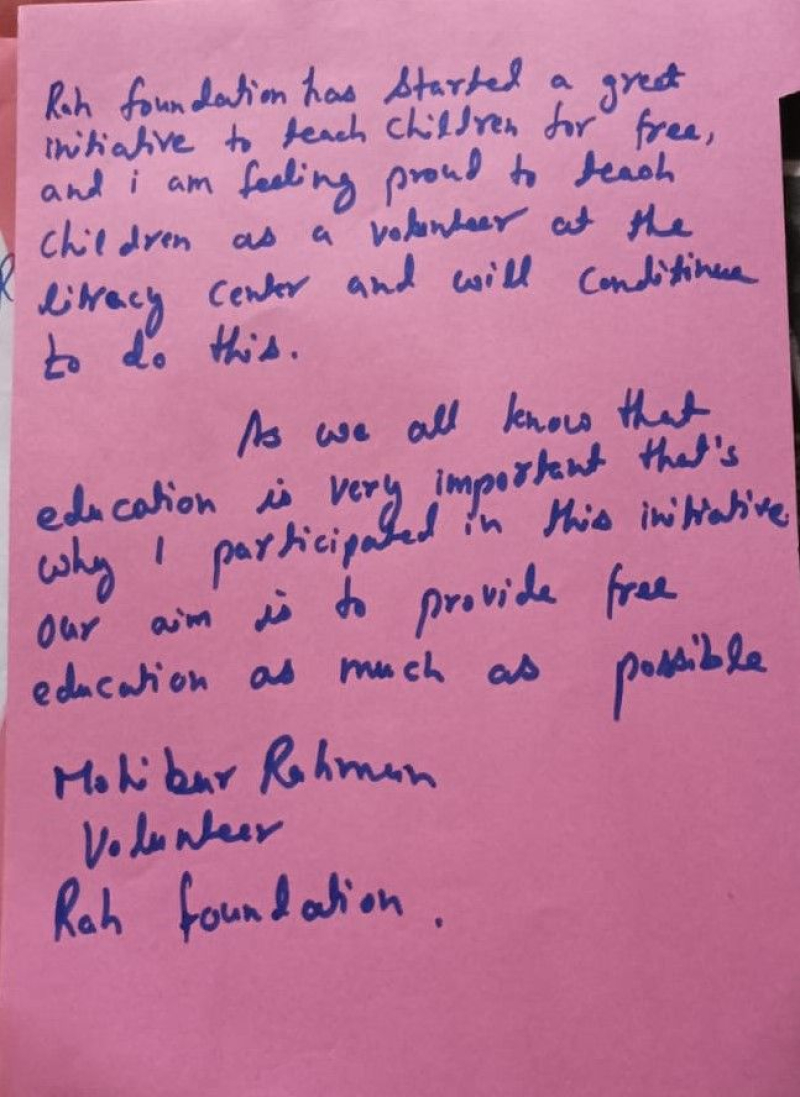 Rah foundation has started a great
initiative to teach children for free,
and i am feeling proud to teach
children as a volunteer at the
litracy center and will conditinue
to do this.
As we all know that
education is very important that's
why I participated in this initiative
our aim is to provide free
education as much as possible
Mohibur Rahman
Volunteer
Rah foundation.